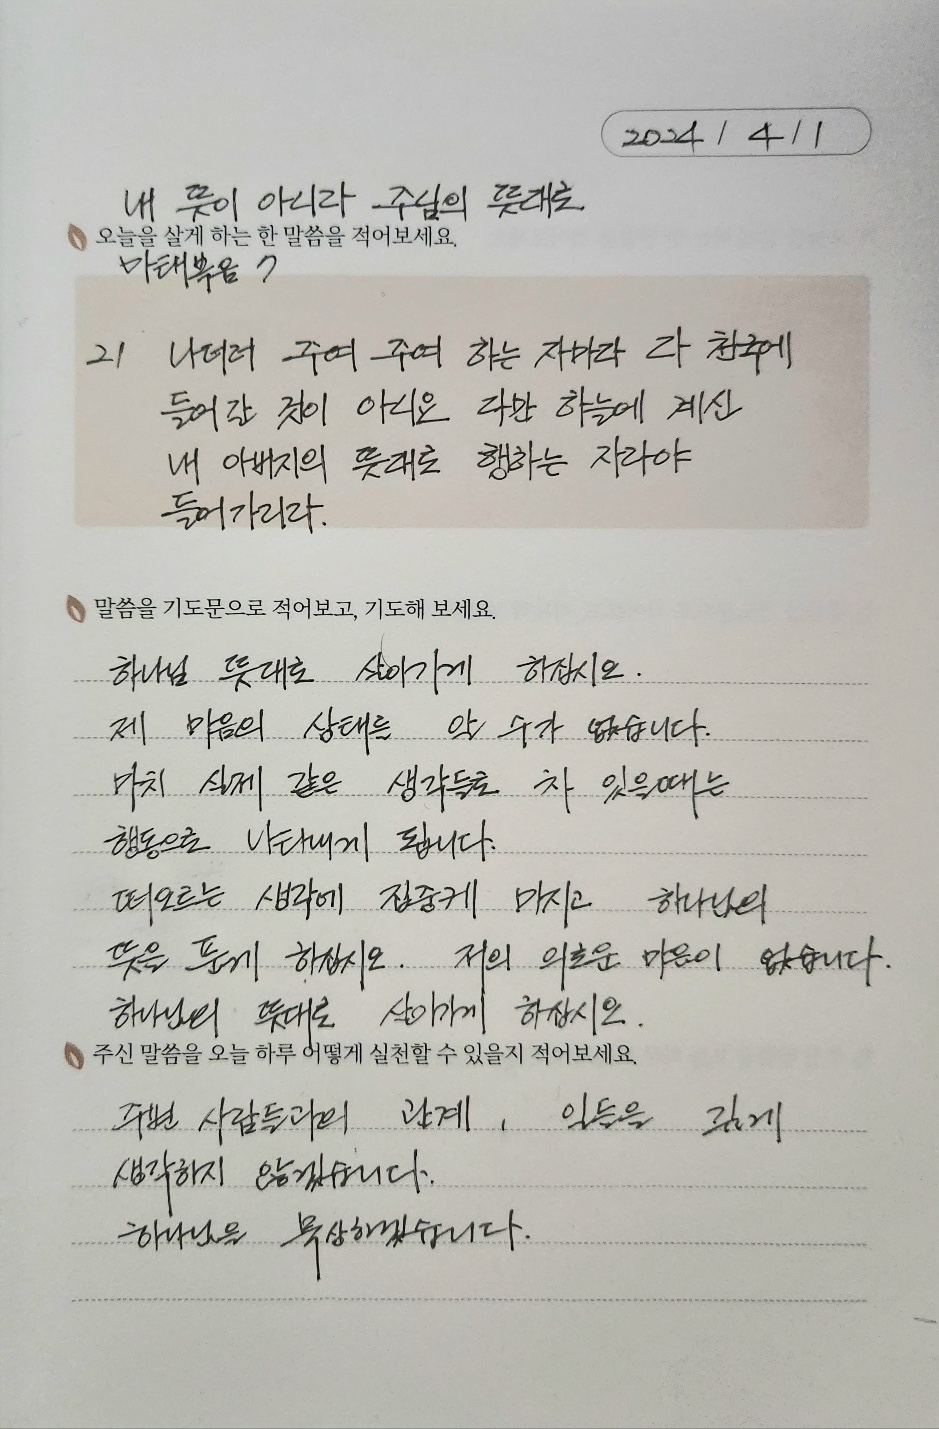 2024 / 4 / 1
내 뜻이 아니라 주님의 뜻대로
오늘을 살게 하는 한 말씀을 적어보세요.
마태복음 7
21 나더러 주여 주여 하는 자마다 다 천국에
들어갈 것이 아니요 다만 하늘에 계신
내 아버지의 뜻대로 행하는 자라야
들어가리라.
말씀을 기도문으로 적어보고, 기도해 보세요.
하나님 뜻대로 살아가게 하십시오.
제 마음의 상태를 알 수가 없습니다.
마치 실제 같은 생각들로 차 있을때는
행동으로 나타내게 됩니다.
떠오르는 생각에 집중케 마시고 하나님의
뜻을 품게 하십시오. 저의 의로운 마음이 없습니다.
하나님의 뜻대로 살아가게 하십시오.
주신 말씀을 오늘 하루 어떻게 실천할 수 있을지 적어보세요.
주변 사람들과의 관계, 일들을 깊게
생각하지 않겠습니다.
하나님을 묵상하겠습니다.